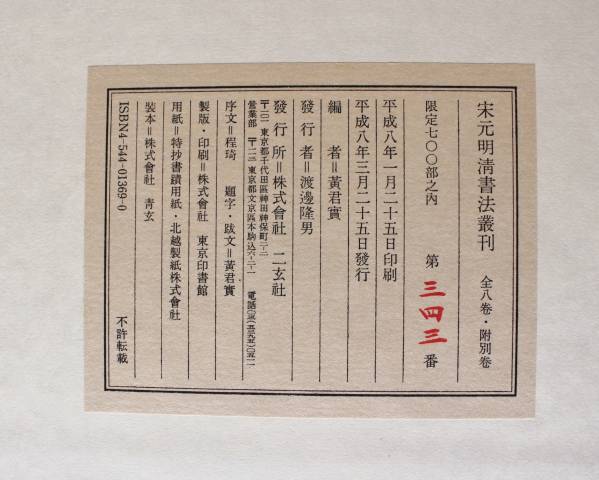 宋元明清書法叢刊　全八卷・附別卷
限定七〇〇部之內　第三四三番
平成八年一月二十五日印刷
平成八年三月二十五日發行
編者＝黃君實
發行者＝渡邊隆男
發行所＝株式會社　二玄社
〒一〇一 東京都千代田區神田神保町二-二
營業部　〒一一三 東京都文京區本駒込六-二-一　電話〇三(五三九五)〇五一一
序文＝程琦　題字・跋文＝黃君實
製版・印刷＝株式會社　東京印書館
用紙＝特抄書蹟用紙・北越製紙株式會社
裝本＝株式會社　青玄
ISBN4-544-01369-0　不許転載